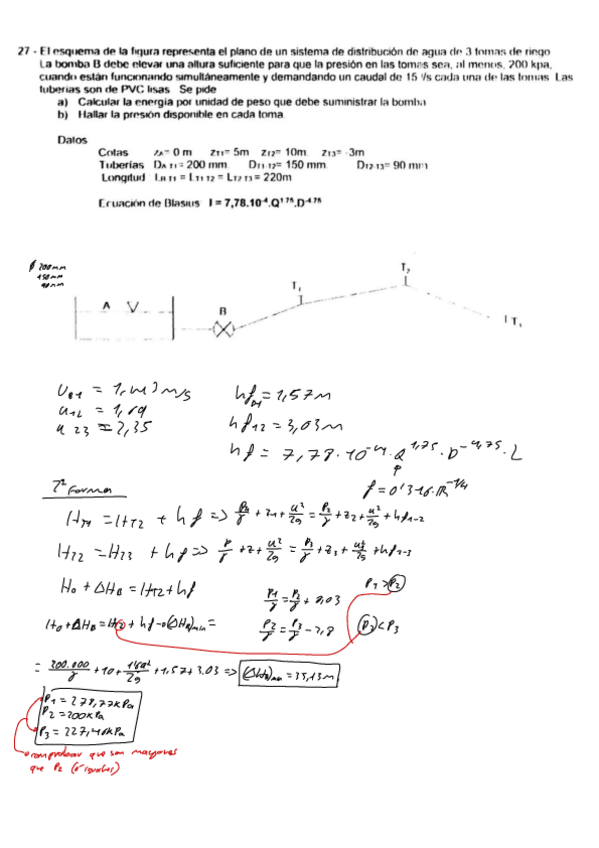 27 - El esquema de la figura representa el plano de un sistema de distribución de agua de 3 tomas de riego
La bomba B debe elevar una altura suficiente para que la presión en las tomas sea, al menos, 200 kpa,
cuando están funcionando simultáneamente y demandando un caudal de 15 l/s cada una de las tomas Las
tuberias son de PVC lisas Se pide
a) Calcular la energía por unidad de peso que debe suministrar la bomba
b) Hallar la presión disponible en cada toma
Datos
Cotas zA= 0 m zT1= 5m zT2= 10m zT3= -3m
Tuberías DA T1= 200 mm DT1-T2= 150 mm DT2-T3= 90 mm
Longitud LA T1 = LT1 T2 = LT2 T3 = 220m
Ecuación de Blasius I = 7,78.10-4.Q1.75.D-4.75
ϕ 200mm
150mm
90mm
A V
B
T1
T2
T3
hf01 = 1,57m
u12 = 1,69
hf12 = 3,03m
u23 = 2,35
hf = 7,78·10-4·Q1,75·D-4,75·L
f = 0'316·R-1/4
2ª Forma
HT1 = HT2 + hf => P1/γ + z1 + u²/2g = P2/γ + z2 + u²/2g + hf1-2
HT2 = HT3 + hf => P/γ + z + u²/2g = P3/γ + z3 + u3²/2g + hf2-3
H0 + ΔHB = HT2 + hf
P1/γ = P2/γ + 8,03
P1 > P2
H0 + ΔHB = HT2 + hf -> (ΔHB)min =
P2/γ = P3/γ - 2,8
P2 < P3
= 200.000/γ + 10 + 1,69²/2g + 1,57 + 3.03 => (ΔHB)min = 35,13m
P1 = 278,77kPa
P2 = 200kPa
P3 = 227,46kPa
comprobar que son mayores
que P2 (ó iguales)